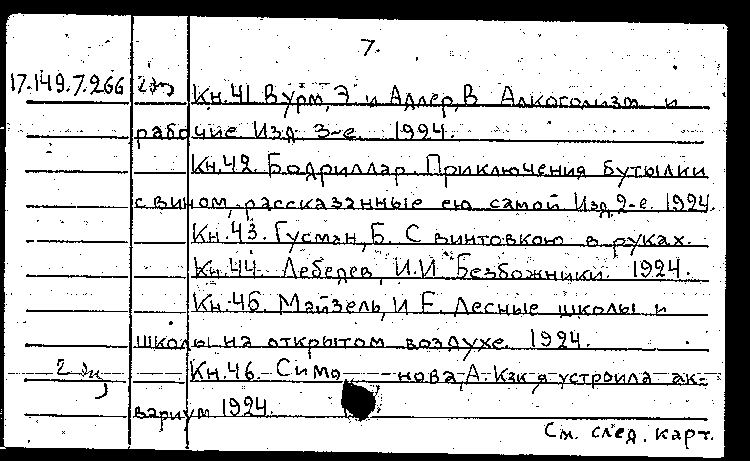 7.
17.149.7.266 2 эк Кн.41 Вурм, Э и Адлер, В Алкоголизм и
рабочие Изд 3-е. 1924.
Кн.42. Бодриллар. Приключения бутылки
с вином, рассказанные ею самой Изд. 2-е. 1924.
Кн.43. Гусман, Б. С винтовкою в руках.
Кн.44. Лебедев, И.И Безбожники. 1924.
Кн.45. Майзель, И Е. Лесные школы и
школы на открытом воздухе. 1924.
2 эк Кн.46. Симо нова, А. Как я устроила ак-
вариум 1924.
См. след. карт.